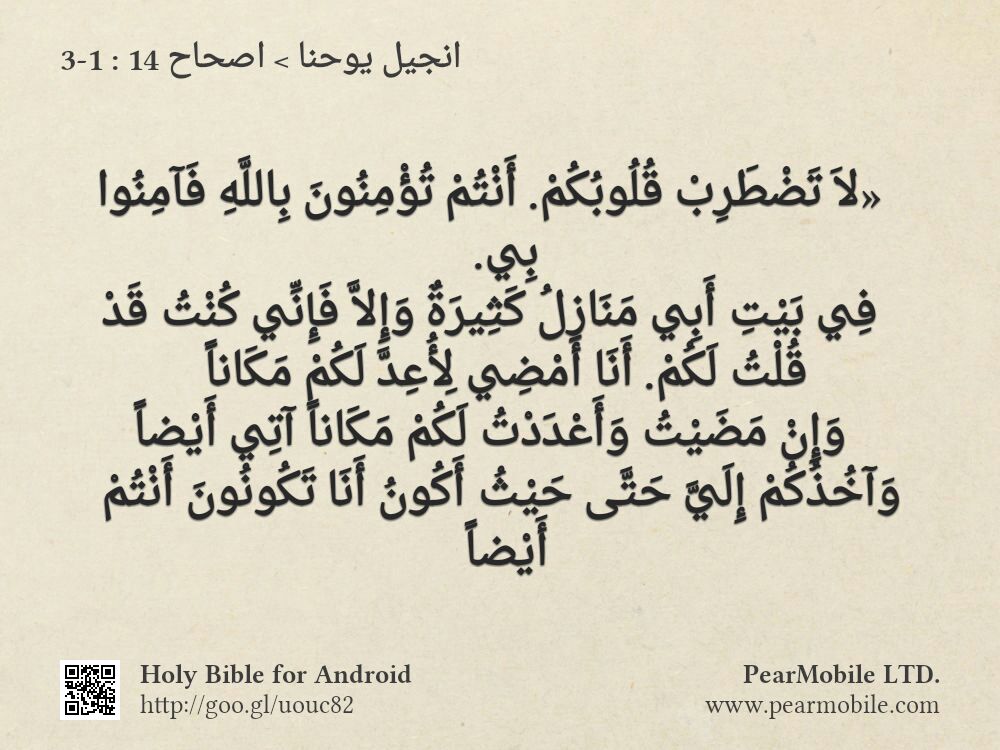 انجيل يوحنا > اصحاح 14 : 1-3
«لاَ تَضْطَرِبْ قُلُوبُكُمْ. أَنْتُمْ تُؤْمِنُونَ بِاللَّهِ فَآمِنُوا
بِي.
فِي بَيْتِ أَبِي مَنَازِلُ كَثِيرَةٌ وَإِلاَّ فَإِنِّي كُنْتُ قَدْ
قُلْتُ لَكُمْ. أَنَا أَمْضِي لِأُعِدَّ لَكُمْ مَكَاناً
وَإِنْ مَضَيْتُ وَأَعْدَدْتُ لَكُمْ مَكَاناً آتِي أَيْضاً
وَآخُذُكُمْ إِلَيَّ حَتَّى حَيْثُ أَكُونُ أَنَا تَكُونُونَ أَنْتُمْ
أَيْضاً
Holy Bible for Android
http://goo.gl/uouc82
PearMobile LTD.
www.pearmobile.com